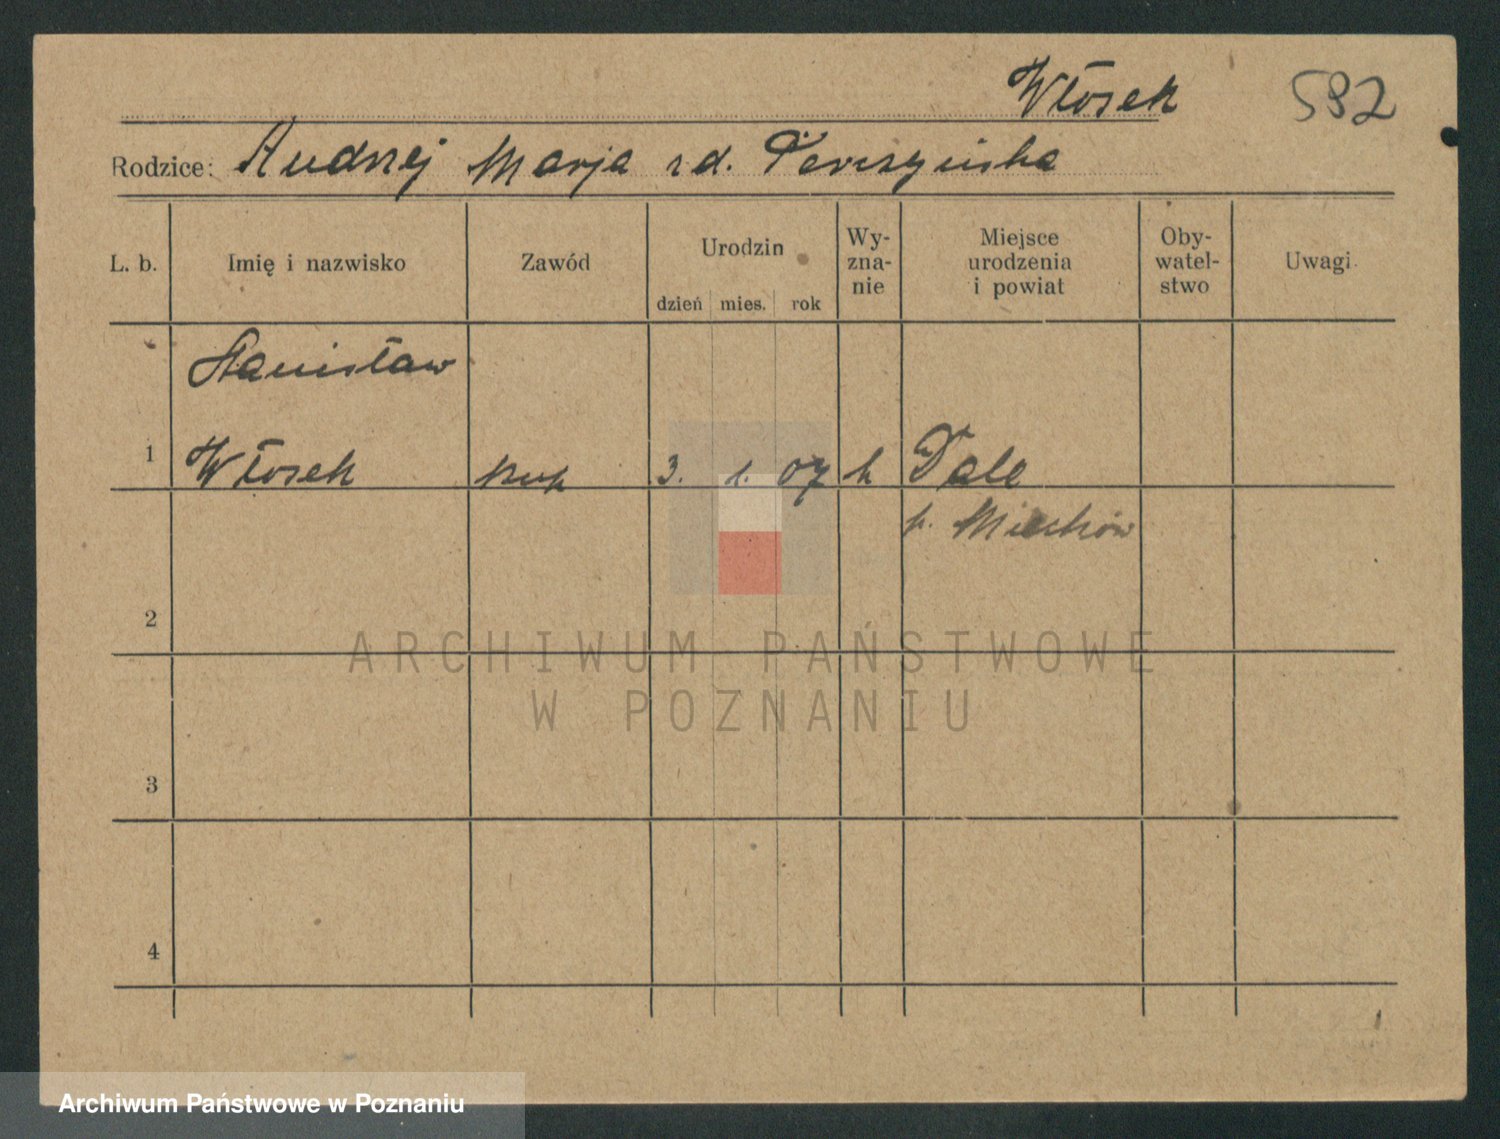 Włosek 592
Rodzice: Andrzej Marja z d.
L. b. Imię i nazwisko Zawód Urodzin dzień mies. rok Wy-zna-nie Miejsce urodzenia i powiat Oby-watel-stwo Uwagi.
Stanisław
1 Włosek 3. 1. 07 k
p. Miechów
2
ARCHIWUM PAŃSTWOWE
W POZNANIU
3
4
Archiwum Państwowe w Poznaniu